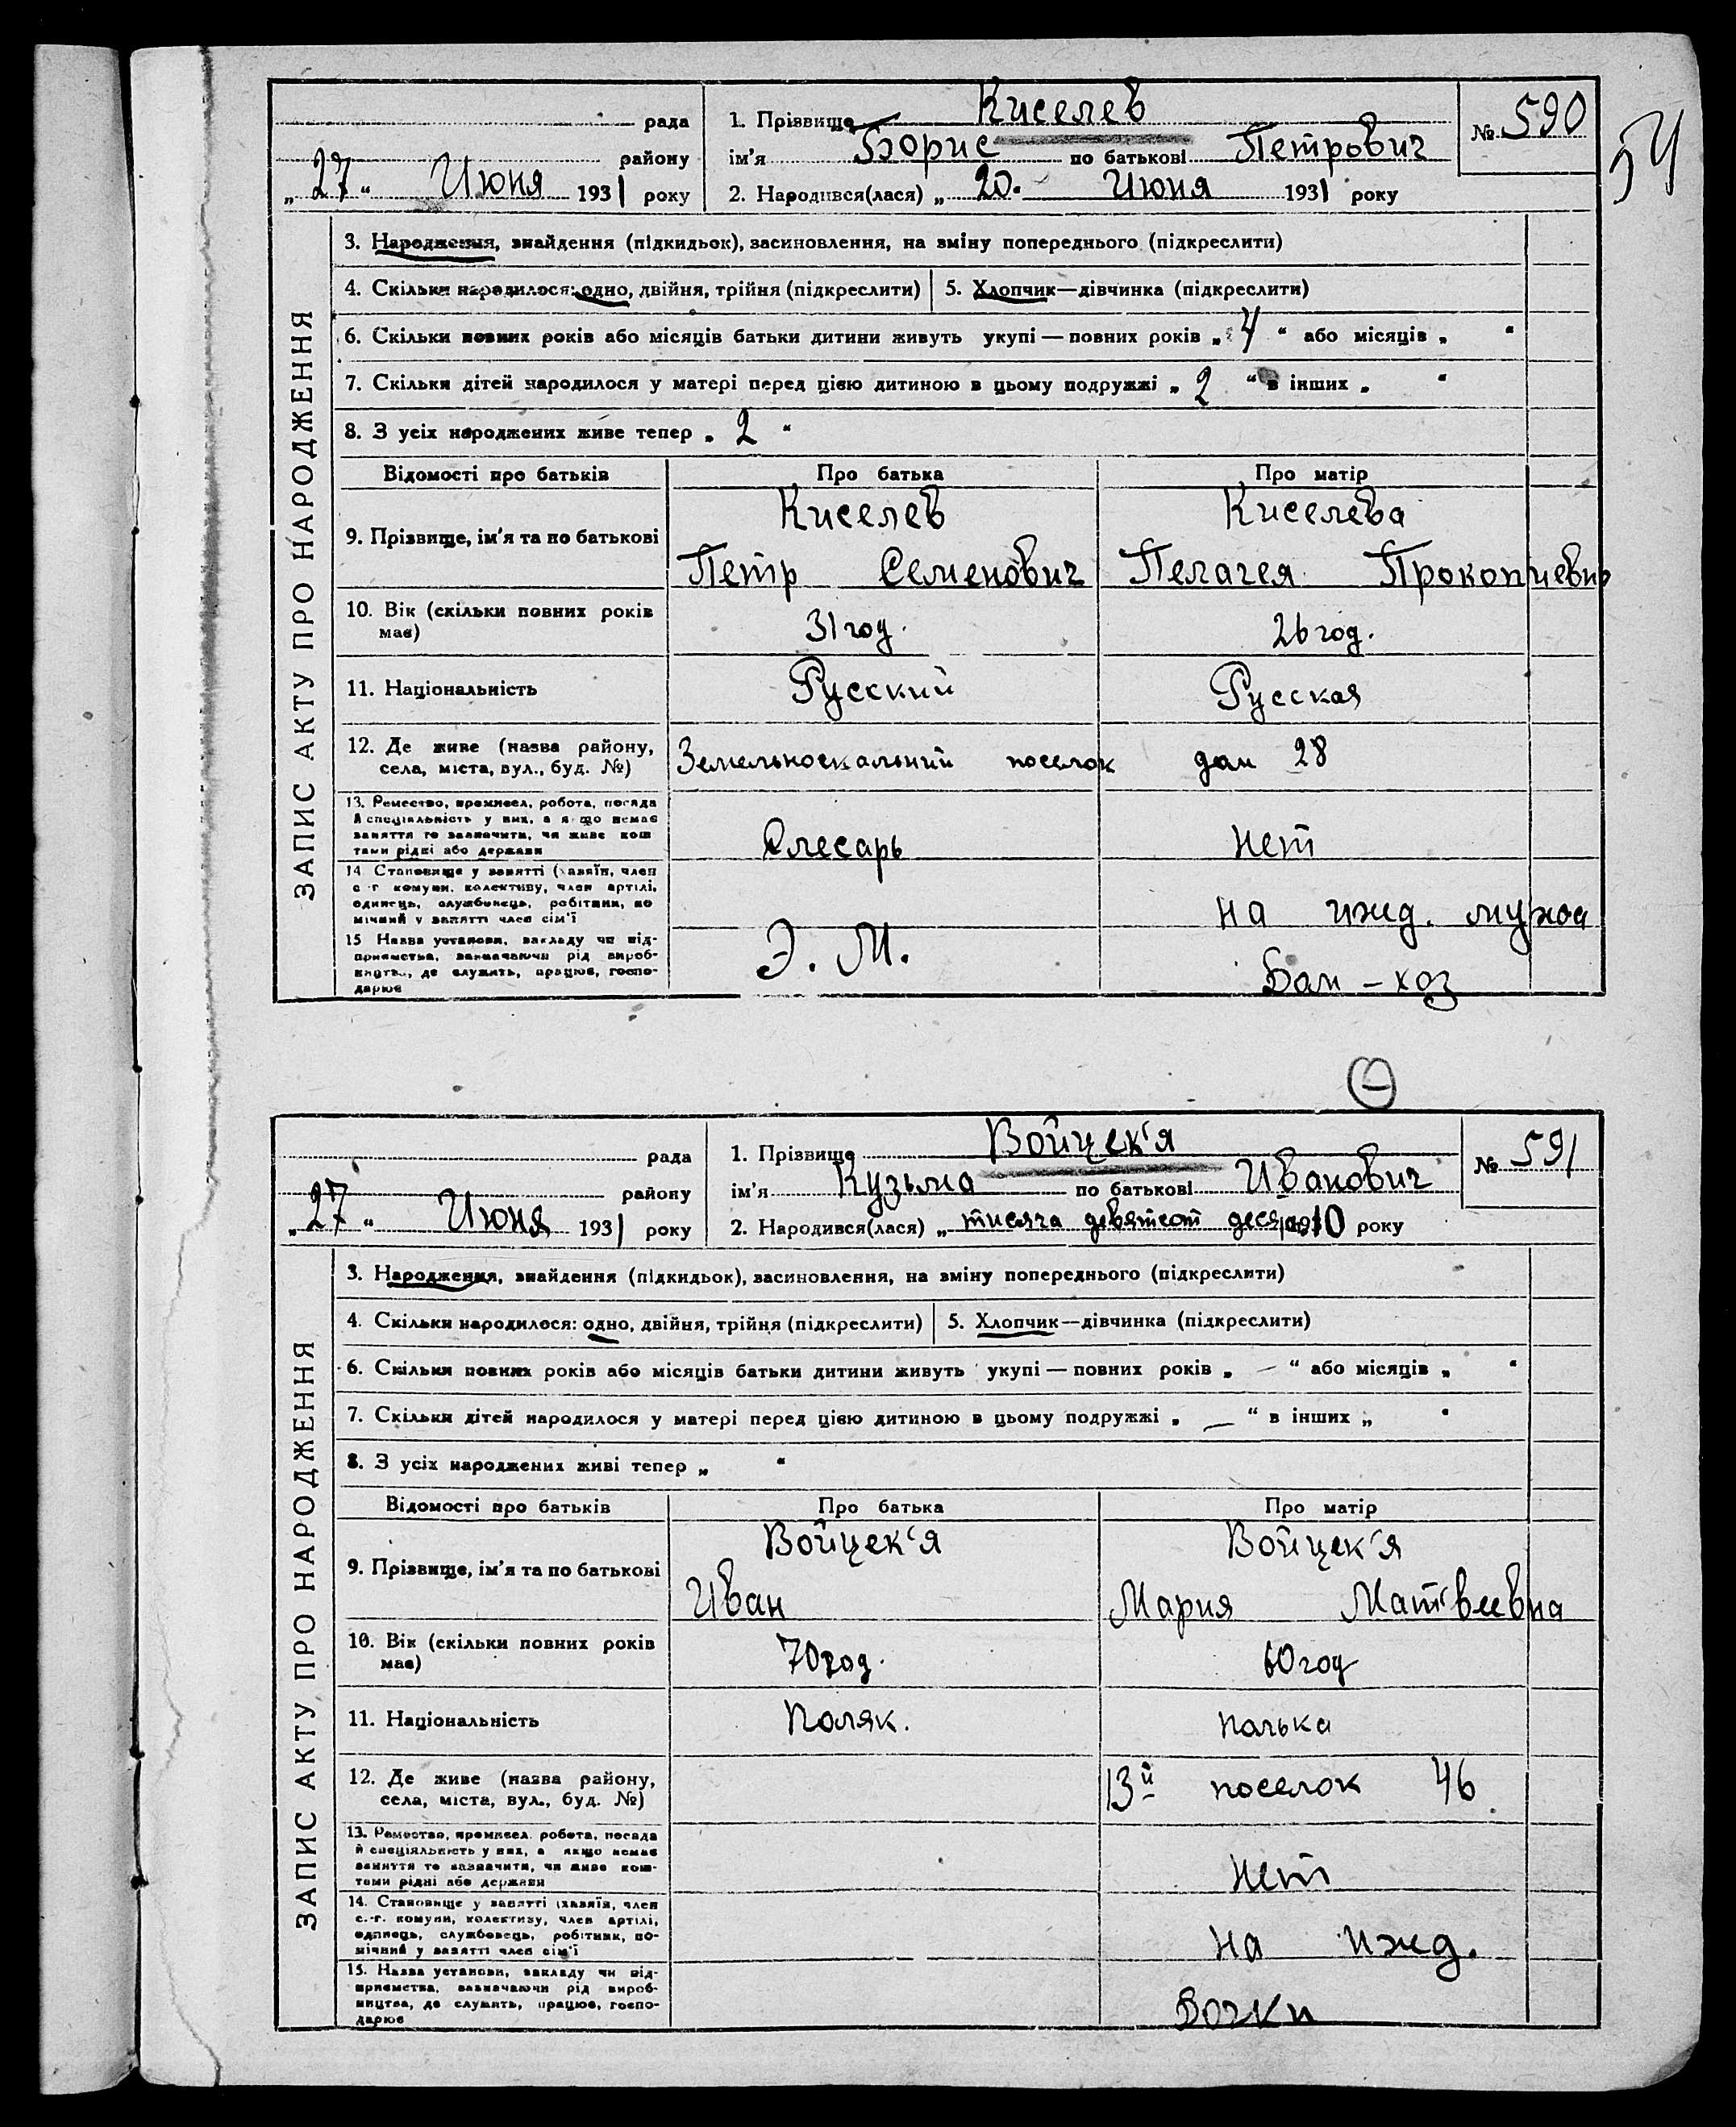 54
рада
району
„27“ Июня 1931 року
1. Прізвище Киселев
ім'я Борис по батькові Петрович
2. Народився(лася) „20. Июня 1931 року
№ 590
ЗАПИС АКТУ ПРО НАРОДЖЕННЯ
3. Народження, знайдення (підкидьок), засиновлення, на зміну попереднього (підкреслити)
4. Скільки народилося: одно, двійня, трійня (підкреслити) 5. Хлопчик—дівчинка (підкреслити)
6. Скільки повних років або місяців батьки дитини живуть укупі — повних років „4“ або місяців „ “
7. Скільки дітей народилося у матері перед цією дитиною в цьому подружжі „2“ в інших „ “
8. З усіх народжених живе тепер „2“
Відомості про батьків Про батька Про матір
9. Прізвище, ім'я та по батькові
Киселев Киселева
Петр Семенович Пелагея Прокопиевна
10. Вік (скільки повних років
має)
31 год. 26 год.
11. Національність Русский Русская
12. Де живе (назва району,
села, міста, вул., буд. №)
поселок дом 28
13. Ремество, промисел, робота, посада
й спеціяльність у них, а якщо немає
заняття то зазначити, чи живе кош
тами рідні або держави
Слесарь нет
14. Становище у занятті (хазяїн, член
с.-г. комуни, колективу, член артілі,
одинець, службовець, робітник, по
мічний у занятті член сім'ї
на ижд. мужа
15. Назва установи, закладу чи під-
приємства, зазначаючи рід вироб-
ництва, де служить, працює, госпо-
дарює
Э. М.
рада
району
„27“ Июня 1931 року
1. Прізвище Войцек'я
ім'я Кузьма по батькові Иванович
2. Народився(лася) „тисяча девятсот 1910 року
№ 591
ЗАПИС АКТУ ПРО НАРОДЖЕННЯ
3. Народження, знайдення (підкидьок), засиновлення, на зміну попереднього (підкреслити)
4. Скільки народилося: одно, двійня, трійня (підкреслити) 5. Хлопчик—дівчинка (підкреслити)
6. Скільки повних років або місяців батьки дитини живуть укупі — повних років „ — “ або місяців „ “
7. Скільки дітей народилося у матері перед цією дитиною в цьому подружжі „ — “ в інших „ “
8. З усіх народжених живі тепер „ “
Відомості про батьків Про батька Про матір
9. Прізвище, ім'я та по батькові
Войцек'я Войцек'я
Иван Мария Матвеевна
10. Вік (скільки повних років
має)
70 год. 60 год
11. Національність Поляк. полька
12. Де живе (назва району,
села, міста, вул., буд. №)
13й поселок 46
13. Ремество, промисел, робота, посада
й спеціяльність у них, а якщо немає
заняття то зазначити, чи живе кош-
тами рідні або держави
нет
14. Становище у занятті (хазяїн, член
с.-г. комуни, колективу, член артілі,
одинець, службовець, робітник, по-
мічний у занятті член сім'ї
на ижд.
15. Назва установи, закладу чи під-
приємства, зазначаючи рід вироб-
ництва, де служить, працює, госпо-
дарює